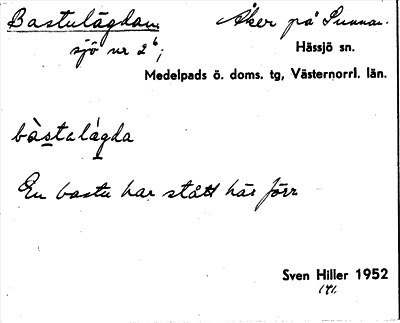 Bastulägdom Åker på Sunnan.
sjö nr 2⁶;
Hässjö sn.
Medelpads ö. doms. tg, Västernorrl. län.
bàstalágda
En bastu har stått här förr
Sven Hiller 1952